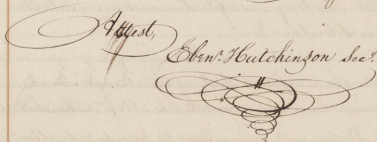 Attest,
Ebenr. Hutchinson Secy.